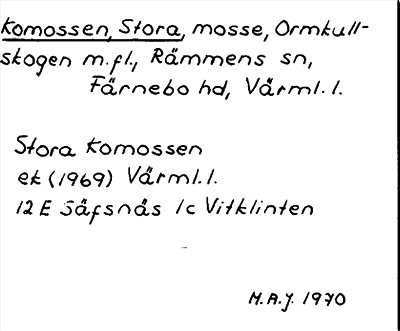 Komossen, Stora, mosse, Ormkull-
skogen m.fl., Rämmens sn,
Färnebo hd, Värml. l.
Stora Komossen
ek (1969) Värml. l.
12 E Säfsnäs 1c Vitklinten
M.A.J. 1970